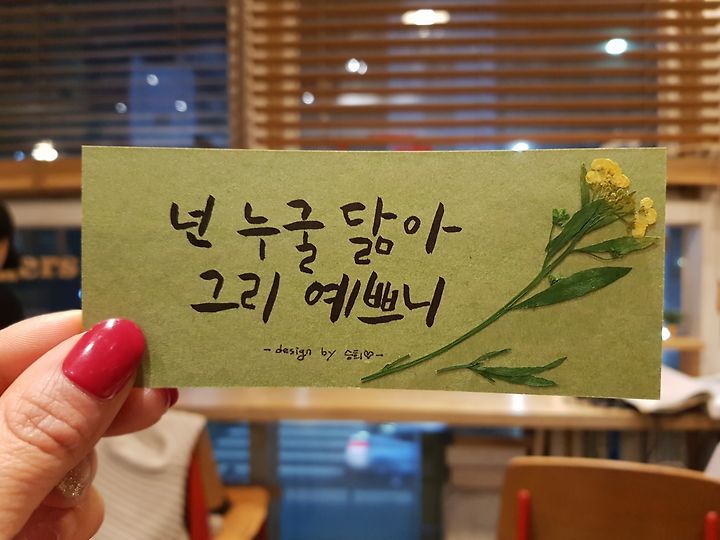 넌 누굴 닮아
그리 예쁘니
- design by 승희♡ -